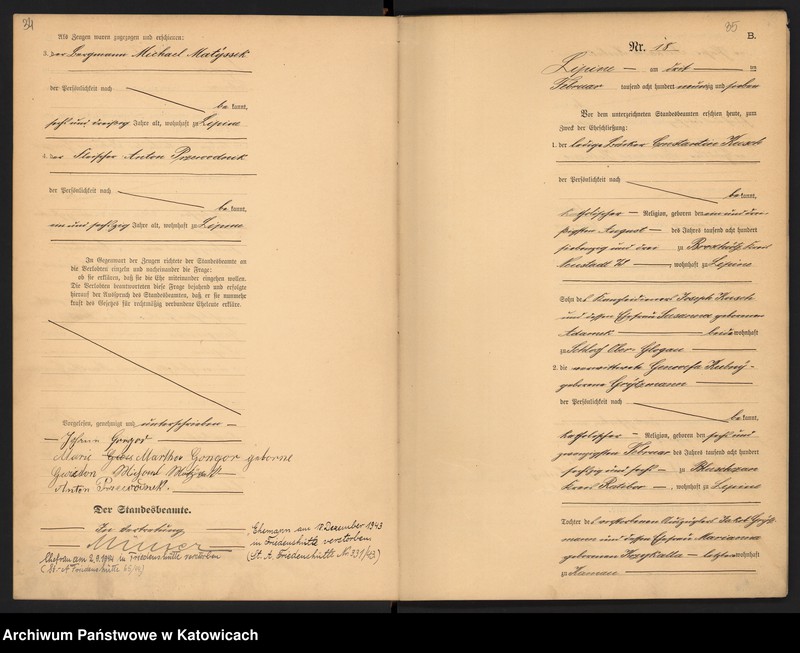 34
Als Zeugen waren zugezogen und erschienen:
3. der Bergmann Michael Matyssek
der Persönlichkeit nach
be kannt,
sechs und dreißig Jahre alt, wohnhaft zu Lipine
4. der Fleischer Anton
der Persönlichkeit nach
be kannt,
ein und sechszig Jahre alt, wohnhaft zu Lipine
In Gegenwart der Zeugen richtete der Standesbeamte an
die Verlobten einzeln und nacheinander die Frage:
ob sie erklären, daß sie die Ehe miteinander eingehen wollen.
Die Verlobten beantworteten diese Frage bejahend und erfolgte
hierauf der Ausspruch des Standesbeamten, daß er sie nunmehr
kraft des Gesetzes für rechtmäßig verbundene Eheleute erkläre.
Vorgelesen, genehmigt und unterschrieben
Johann Gongor
Marie Martha Gongor geborne
Gwosdon
Anton
Der Standesbeamte.
In Vertretung
Müller
Ehefrau am in Friedenshütte verstorben
(St.-A Friedenshütte
Ehemann am 7 Dezember 1943
in Friedenshütte verstorben
(St. A. Friedenshütte № 331/43)
35
B.
Nr. 18
Lipine am drit ten
Februar tausend acht hundert neunzig und sieben
Vor dem unterzeichneten Standesbeamten erschien heute, zum
Zweck der Eheschließung:
1. der ledige Constantin Kusch
der Persönlichkeit nach
be kannt,
katholischer Religion, geboren den ein und drei-
ßigsten August des Jahres tausend acht hundert
siebenzig und drei zu Kreis
Neustadt , wohnhaft zu Lipine
Sohn des Kanzleidieners Joseph Kusch
und dessen Ehefrau Susanna geborenen
Adamek beide wohnhaft
zu Schloß Ober-Glogau
2. die verwittwete Genovefa
geborene Grytzmann
der Persönlichkeit nach
be kannt,
katholischer Religion, geboren den sechs und
zwanzigsten Februar des Jahres tausend acht hundert
sechszig und sechs zu
Kreis Ratibor , wohnhaft zu Lipine
Tochter des verstorbenen Auszüglers Jakob Grytz-
mann und dessen Ehefrau Marianna
geborenen letztere wohnhaft
zu
Archiwum Państwowe w Katowicach